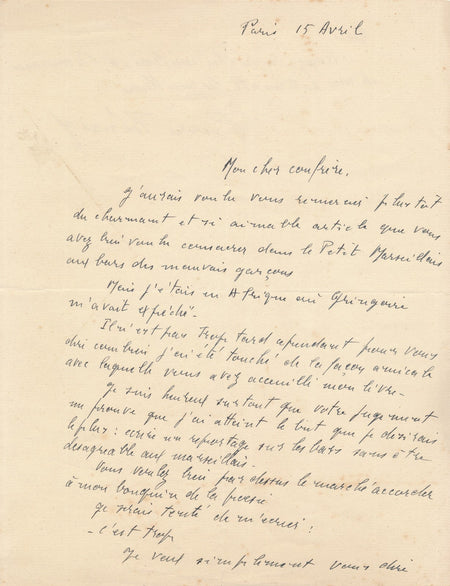 Paris 15 Avril
Mon cher confrère,
J'aurais voulu vous remercier plus tôt
du charmant et si aimable article que vous
avez bien voulu consacrer dans le Petit Marseillais
aux bars des mauvais garçons
Mais j'étais en Afrique où Gringoire
m'avait dépêché.
Il n'est pas trop tard cependant pour vous
dire combien j'ai été touché de la façon amicale
avec laquelle vous avez accueilli mon livre.
Je suis heureux surtout que votre jugement
me prouve que j'ai atteint le but que je désirais
le plus : écrire un reportage sur les bars sans être
désagréable aux marseillais.
Vous voulez bien par dessus le marché accorder
à mon bouquin de la poésie
Je serais tenté de m'écrier :
- c'est trop
Je veux simplement vous dire